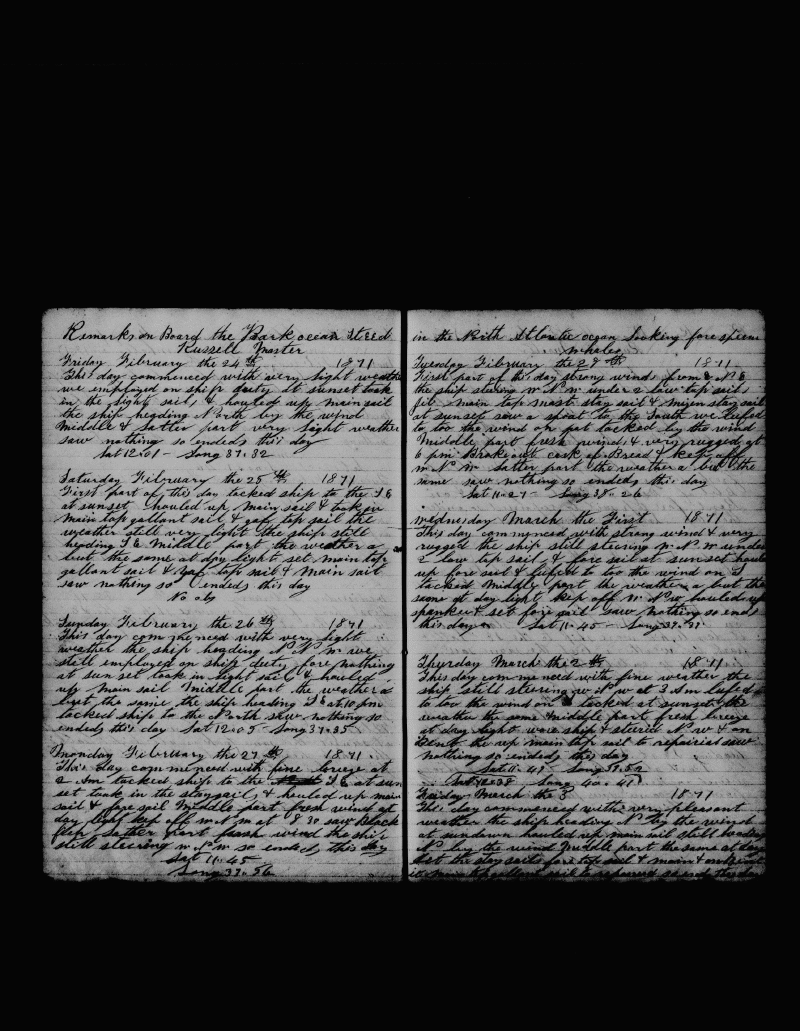 Remarks on Board the Bark ocean Steed
Russell Master
Friday February the 24th 1871
This day commenced with very light weather
we employed on ship duty at sunset took
in the light sails & hauled up main sail
the ship heading North by the wind
Middle & latter part very light weather
saw nothing so ended this day
Lat 12.01 - Long 37.32
Saturday February the 25th 1871
First part of this day tacked ship to the S E
at sunset hauled up main sail & took in
main top gallant sail & gaf top sail the
weather still very light the ship still
heading S E Middle part the weather a
bout the same at day light set main top
gallant sail & gaf top sail & main sail
saw nothing so ended this day
No obs
Sunday February the 26th 1871
This day commenced with very light
weather the ship heading N N W we
still employed on ship duty fore nothing
at sun set took in light sail & hauled
up main sail Middle part the weather a
bout the same the ship heading S E at 10 pm
tacked ship to the North saw nothing so
ended this day Lat 12.05 - Long 37.35
Monday February the 27th 1871
This day commenced with fine breeze at
2 Am tacked ship to the S E at sun
set took in the staysails & hauled up main
sail & fore sail Middle part fresh wind at
day light kep off W N W at 8 30 saw Black
fish latter part fresh wind the ship
still steering W N W so ended this day
Lat 11.45
Long 37.56
in the North Atlantic ocean looking fore sperm
whales
Tuesday February the 28th 1871
First part of this day strong winds from E N E
the ship stering W N W under 2 low top sails
jib main top mast stay sail & mizen stay sail
at sunset saw a spout to the South we lufed
to too the wind on tacked by the wind
Middle part fresh winds & very rugged at
6 pm Broke out cask of Bread & kep off
W N W latter part the weather a bout the
same saw nothing so ended this day
Lat 11.27 - Long 38.26
Wednesday March the First 1871
This day commenced with strong wind & very
rugged the ship still steering W N W under
2 low top sails & fore sail at sunset hauled
up fore sail & lufed to too the wind on S
tacked Middle part the weather a bout the
same at day light kep off W N W hauled up
spanker & set fore sail saw nothing so ends
this day Lat 11.45 - Long 39.31
Thursday March the 2th 1871
This day commenced with fine weather the
ship still steering W N W at 3 Am lufed
to too the wind on tacked at sunset the
weather the same Middle part fresh breeze
at day light wore ship & steered N W & on
bent the up main top sail to repair it saw
nothing so ended this day
Lat 11.41 Long 39.52
Long 40.41
Friday March the 3 1871
This day commenced with very pleasant
weather the ship heading N by the wind
at sundown hauled up main sail still heading
N by the wind Middle part the same at day
set the stay sails fore top sail & main
main top gallant sail so end this day